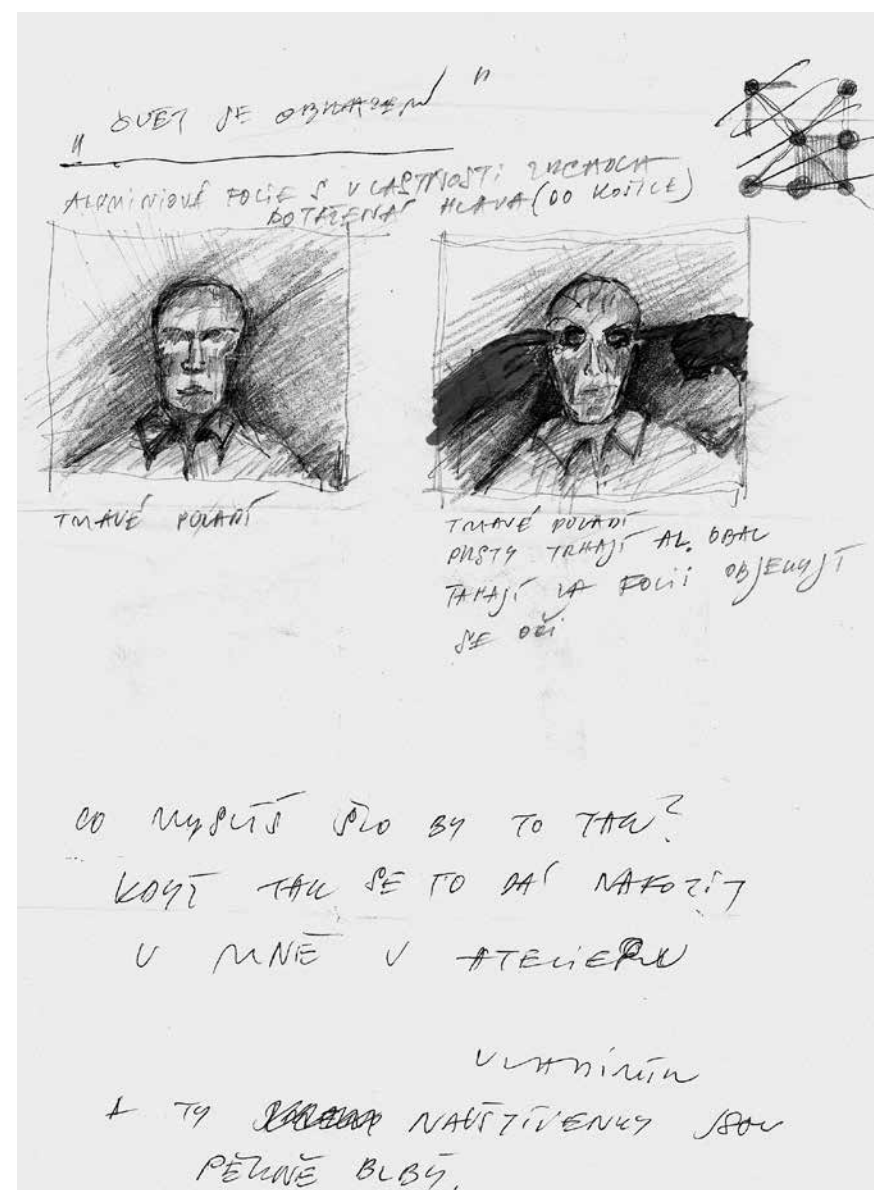 „SVĚT VE OBRAZEM"
ALUMINIOVÁ FOLIE S VLASTNOSTÍ ZRCADLA
DOTAŽENÁ HLAVA (DO KOŠILE)
TMAVÉ POZADÍ
TMAVÉ POZADÍ
PRSTY TRHAJÍ AL. OBAL
TAHAJÍ ZA FOLII OBJEVUJÍ
SE OČI
CO MYSLÍŠ ŠLO BY TO TAK?
KDYŽ TAK SE TO DÁ NAFOTIT
U MNĚ V ATELIERU
VLADIMÍR
A TY NAVŠTÍVENKY JSOU
PĚKNĚ BLBÝ.